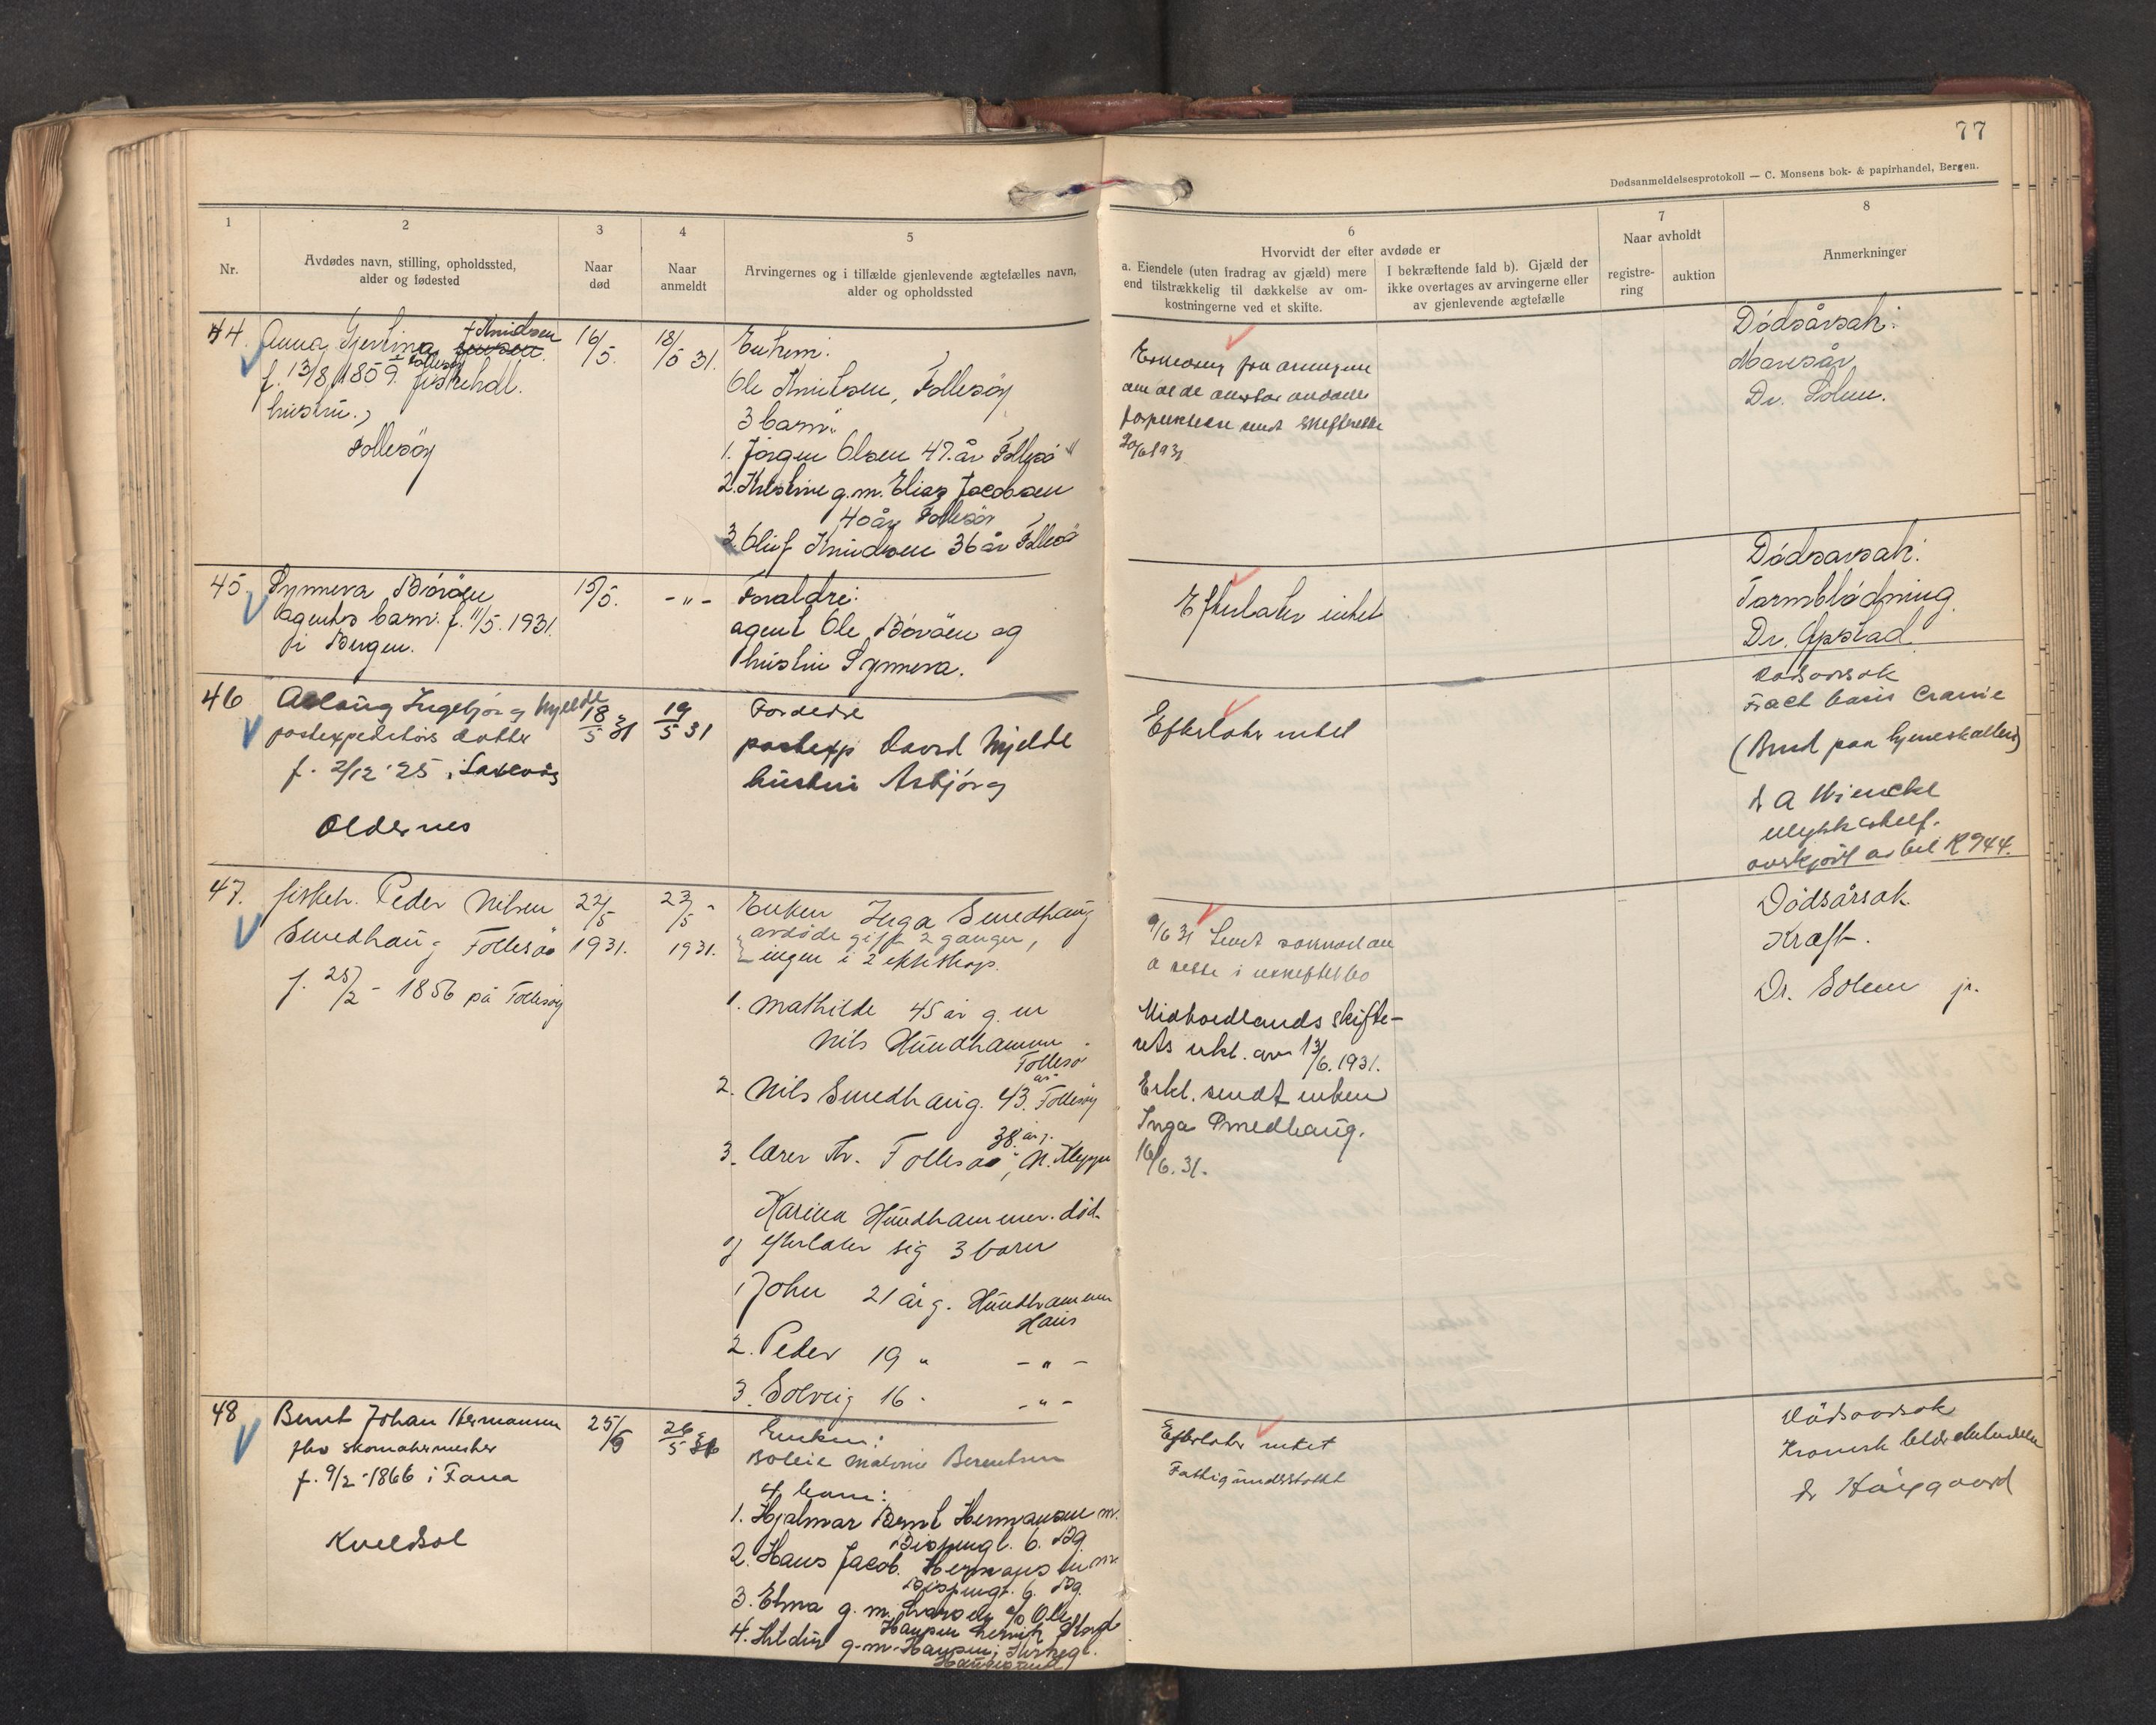 77
Dødsanmeldelsesprotokoll — C. Monsens bok- & papirhandel, Bergen.
1
Nr.
2
Avdødes navn, stilling, opholdssted,
alder og fødested
3
Naar
død
4
Naar
anmeldt
5
Arvingernes og i tilfælde gjenlevende ægtefælles navn,
alder og opholdssted
6
Hvorvidt der efter avdøde er
a. Eiendele (uten fradrag av gjæld) mere
end tilstrækkelig til dækkelse av om-
kostningerne ved et skifte.
I bekræftende fald b). Gjæld der
ikke overtages av arvingerne eller
av gjenlevende ægtefælle
7
Naar avholdt
registre-
ring
auktion
8
Anmerkninger
44.
Anna Gjertina
Knudsen
f. 13/8 1859. fiskehdl.
hustru,
Follesöy
16/5.
18/5 31.
Enkem.
Ole Knutsen, Follesöy
3 barn:
1. Jörgen Olsen 47. år Follesö
2. Kristine g.m. Elias Jacobsen
40 år Follesöy
3. Oluf Knudsen 36 år Follesö
20/6 1931
Dødsårsak:
Dr. Solem.
45.
Synneva Böröen
agents barn. f. 11/5. 1931.
i Bergen.
15/5.
- " -
Foraldre:
agent Ole Böröen og
hustru Synneva.
Efterlater intet
Dødsarsak:
Tarmblödning
Dr. Gjostad
46
Aslaug Ingebjörg Mjelde
postexpeditörs datter
f. 2/12 '25 i Laxevåg
Oldernes
18/5 31
19/5 31
Foreldre
postexp David Mjelde
hustru Asbjörg
Efterlater intet
Dødsarsak
Fract basis Cranie
(Brud paa hjerneskallen)
Dr A Wiencke
ulykkestilf.
overkjört av bil R 944.
47.
fiskeh. Peder Nilsen
Smedhaug Follesöö
f. 25/2 - 1856 på Follesöy
22/5
1931.
23/5 -
1931.
Enken Inga Smedhaug
avdöde gift 2 ganger,
ingen i 2 ekteskap.
1. Mathilde 45 år g. m
Nils Hundhammer
Follesö
2. Nils Smedhaug. 43. år Follesöy
3. lærer Kr. Follesöö, 38 år g.
Karina Hundhammer. död.
og efterlater sig 3 barn
1 John 21 år g. Hundhammer
Haus
2. Peder 19 " - " -
3. Solveig 16 - - " -
9/6 31 Sendt
Midhordlands skifte-
rets erkl. av 13/6. 1931.
Erkl. sendt enken
Inga Smedhaug.
16/6. 31.
Dødsårsak.
Kræft.
Dr. Solem jr.
48
Bernt Johan Hermansen
fhv skomakermester
f. 9/2 - 1866 i Fana
Kveldsol
25/5
26/5 31
Enken:
Malvine Berentsen
4 barn:
1. Hjalmar Bernt Hermansen m.
Bispengt. 6. Bg.
2. Hans Jacob. Hermansen m.
Bispengt. 6. Bg.
3. Elna g. m.
4. g. m. Hansen,
Efterlater intet
Fattigunderstøttet
Dødsaarsak
Kronisk
Dr Haugaard